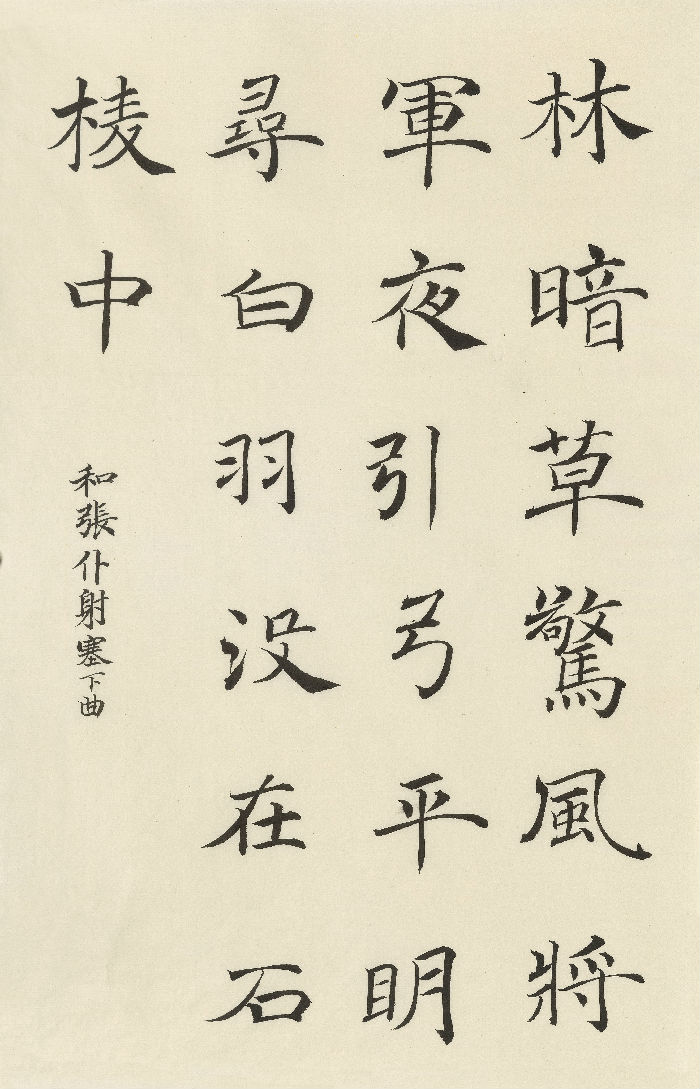 林暗草驚風將
軍夜引弓平明
尋白羽没在石
棱中
和張仆射塞下曲